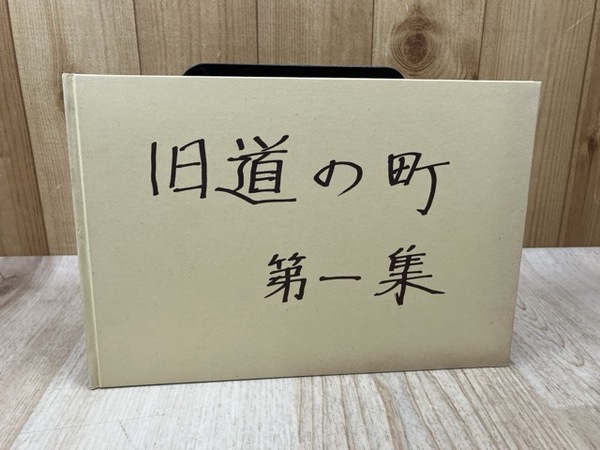 旧道の町
第一集